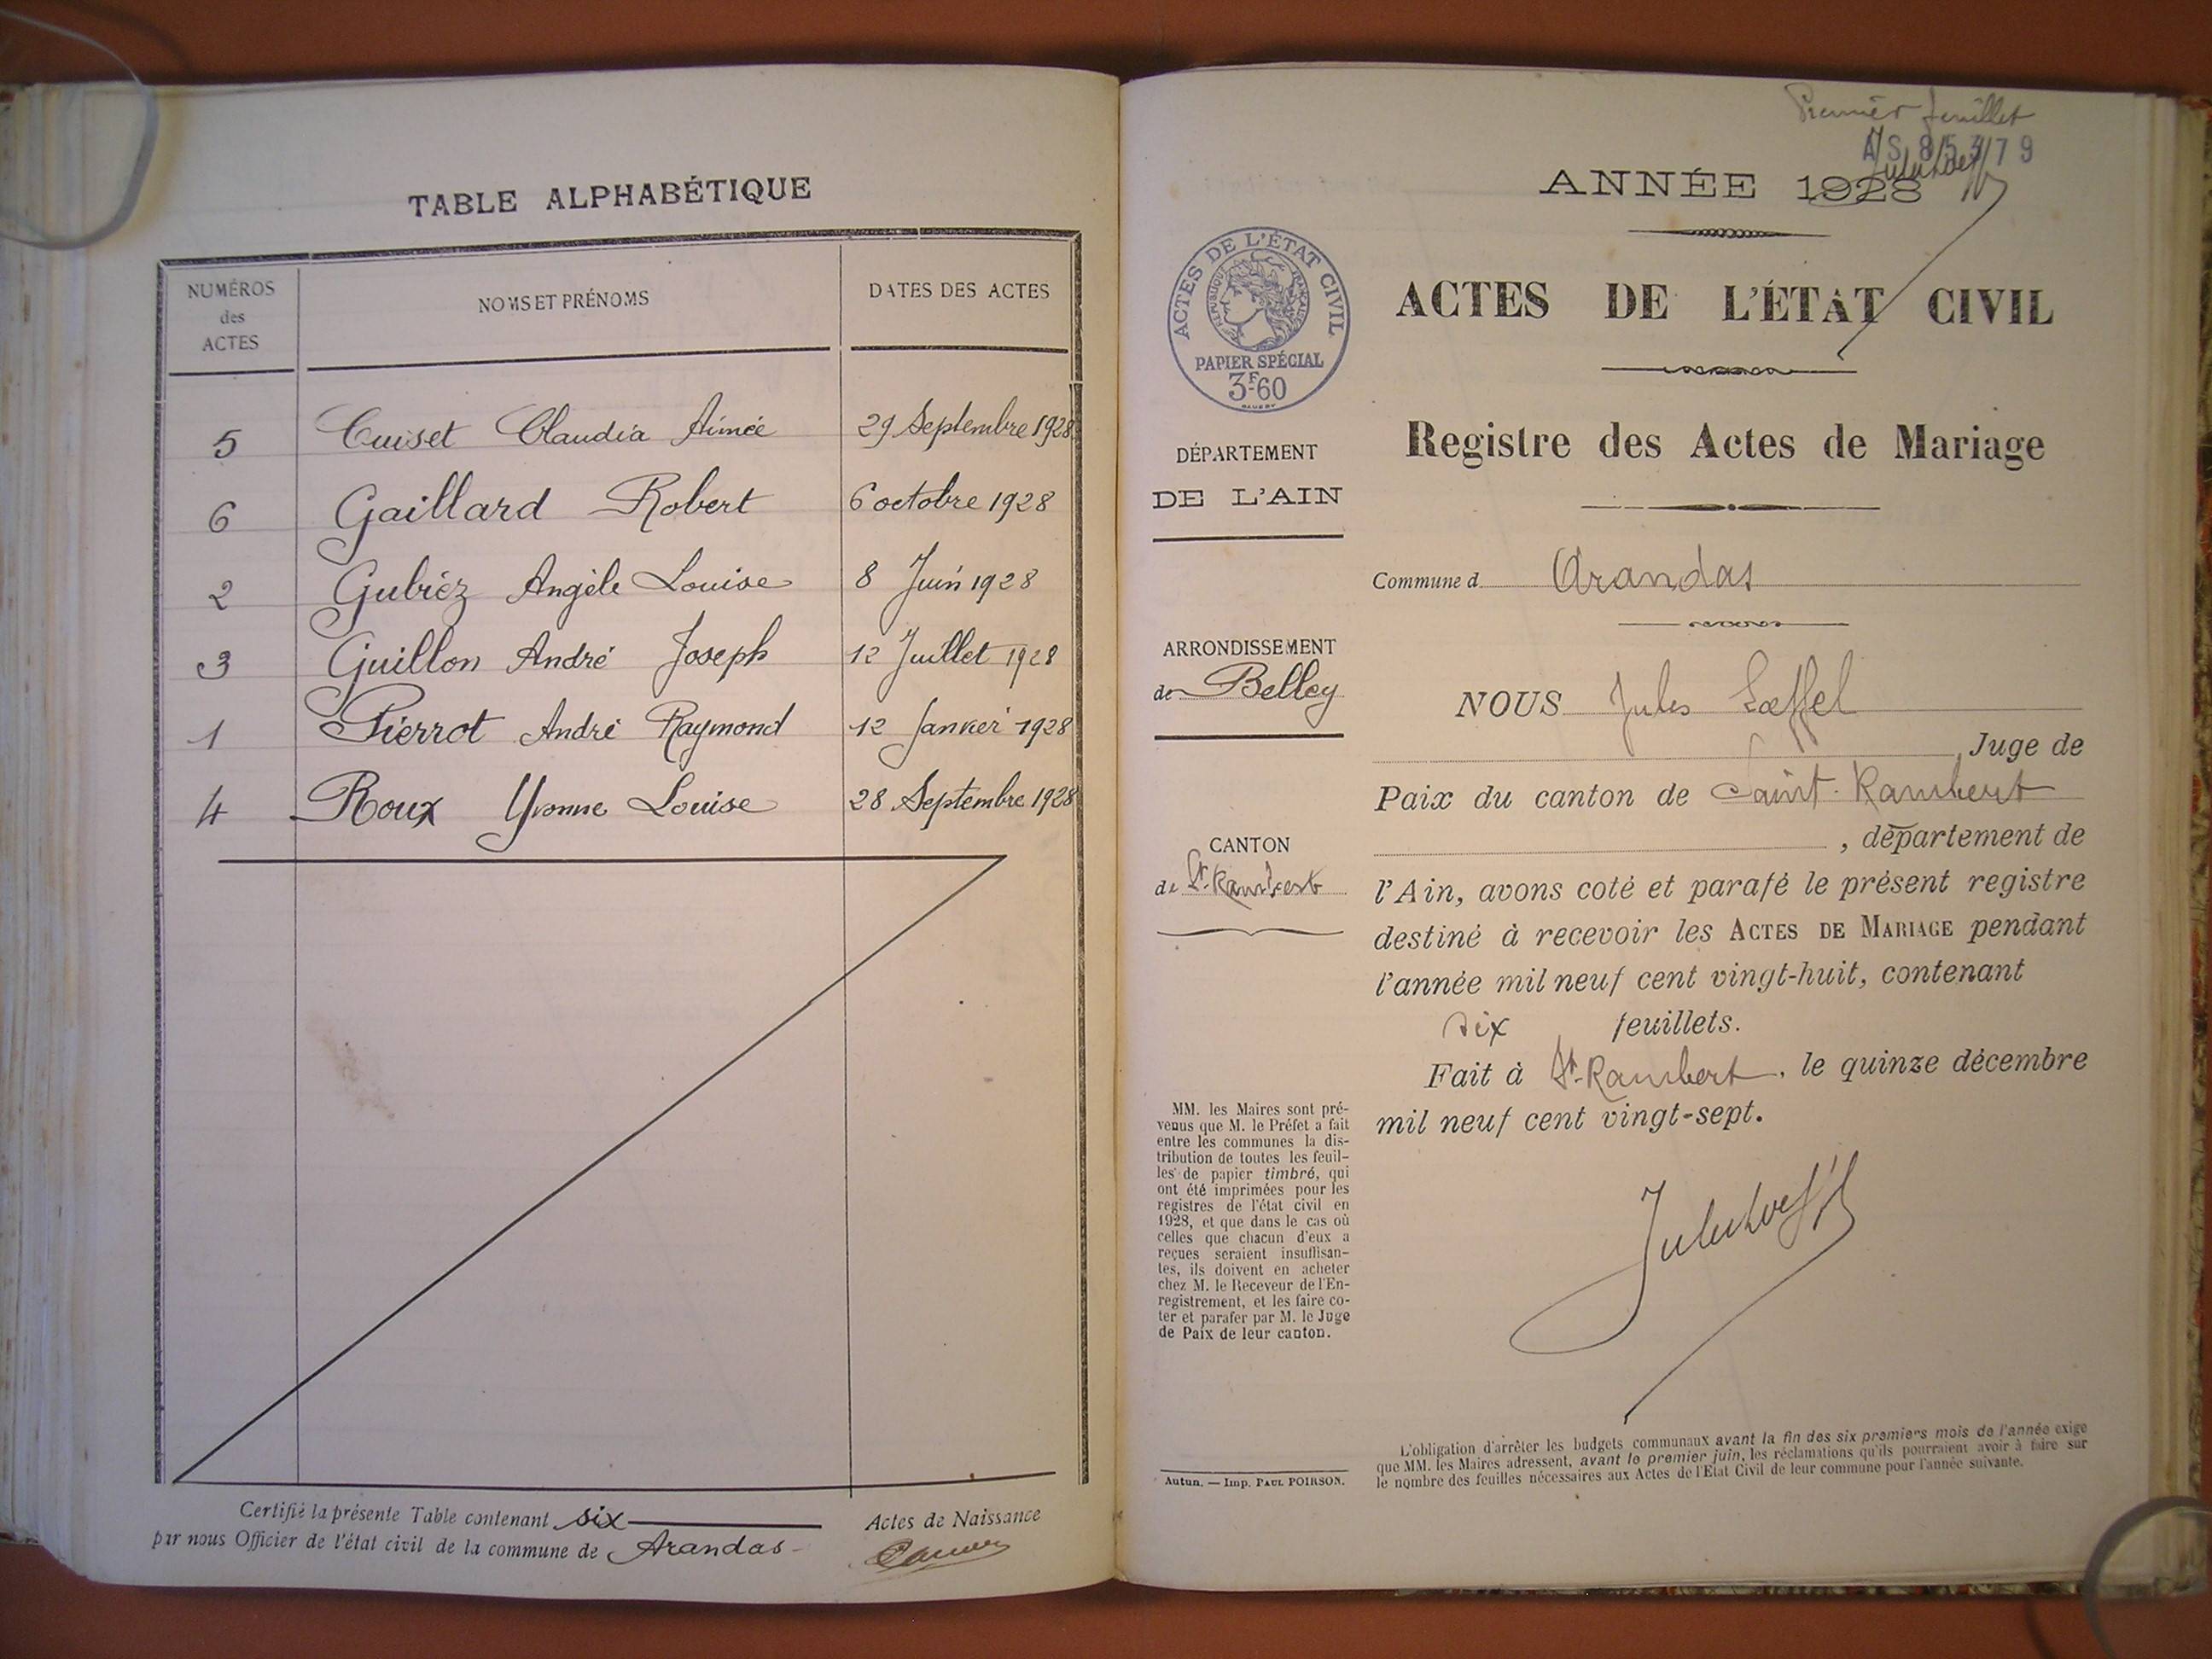 TABLE ALPHABÉTIQUE
NUMÉROS
des
ACTES
NOMS ET PRÉNOMS
DATES DES ACTES
5 Cuiset Claudia Aimée 29 Septembre 1928
6 Gaillard Robert 6 octobre 1928
2 Gubiéz Angèle Louise 8 Juin 1928
3 Guillon André Joseph 12 Juillet 1928
1 Pierrot André Raymond 12 Janvier 1928
4 Roux Yvonne Louise 28 Septembre 1928
Certifié la présente Table contenant six Actes de Naissance
par nous Officier de l'état civil de la commune de Arandas
Premier feuillet
A/S 85379
ANNÉE 1928
ACTES DE L'ÉTAT CIVIL
RÉPUBLIQUE FRANÇAISE
PAPIER SPÉCIAL
3F60
ACTES DE L'ÉTAT CIVIL
Registre des Actes de Mariage
DÉPARTEMENT
DE L'AIN
Commune d Arandas
ARRONDISSEMENT
de Belley
CANTON
de St. Rambert
NOUS Jules Lœffel
, Juge de
Paix du canton de Saint-Rambert
, département de
l'Ain, avons coté et parafé le présent registre
destiné à recevoir les ACTES DE MARIAGE pendant
l'année mil neuf cent vingt-huit, contenant
six feuillets.
Fait à St-Rambert, le quinze décembre
mil neuf cent vingt-sept.
MM. les Maires sont pré-
venus que M. le Préfet a fait
entre les communes la dis-
tribution de toutes les feuil-
les de papier timbré, qui
ont été imprimées pour les
registres de l'état civil en
1928, et que dans le cas où
celles que chacun d'eux a
reçues seraient insuffisan-
tes, ils doivent en acheter
chez M. le Receveur de l'En-
registrement, et les faire co-
ter et parafer par M. le Juge
de Paix de leur canton.
Autun. — Imp. PAUL POIRSON.
L'obligation d'arrêter les budgets communaux avant la fin des six premiers mois de l'année exige
que MM. les Maires adressent, avant le premier juin, les réclamations qu'ils pourraient avoir à faire sur
le nombre des feuilles nécessaires aux Actes de l'Etat Civil de leur commune pour l'année suivante.